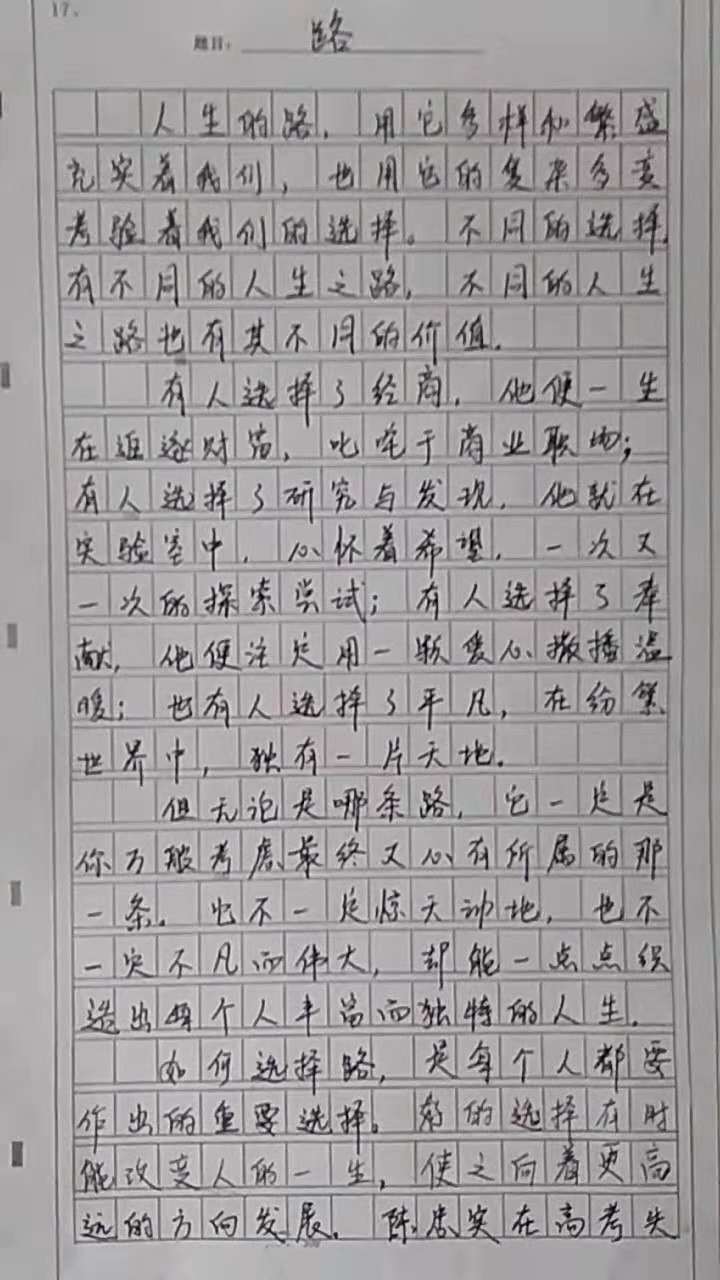 17.
题目：路
人生的路，用它多样和繁盛
充实着我们，也用它的复杂多变
考验着我们的选择。不同的选择，
有不同的人生之路，不同的人生
之路也有其不同的价值．
有人选择了经商，他便一生
在追逐财富，叱咤于商业职场；
有人选择了研究与发现，他就在
实验室中，心怀着希望，一次又
一次的探索尝试；有人选择了奉
献，他便注定用一颗爱心撒播温
暖；也有人选择了平凡，在纷繁
世界中，独有一片天地．
但无论是哪条路，它一定是
你万般考虑最终又心有所属的那
一条．它不一定惊天动地，也不
一定不凡而伟大，却能一点点织
造出每个人丰富而独特的人生．
如何选择路，是每个人都要
作出的重要选择。的选择有时
能改变人的一生，使之向着更高
远的方向发展．陈忠实在高考失